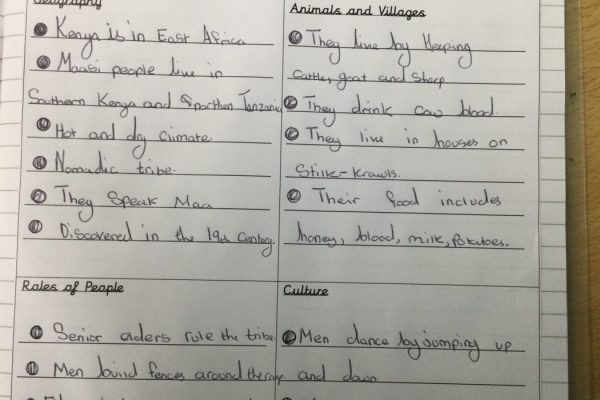 Geography
Kenya is in East Africa
Maasi people live in
Southern Kenya and Northen Tanzania
Hot and dry climate.
Nomadic tribe.
They Speak Maa
Discovered in the 19th Century.
Animals and Villages
They live by Keeping
Cattle, goat and sheep
They drink cow blood.
They live in houses on
Stilk-Krawls.
Their food includes
honey, blood, milk, potatoes.
Roles of People
Senior elders role the tribe
Men build fences around the
Culture
Men dance by jumping up
and down